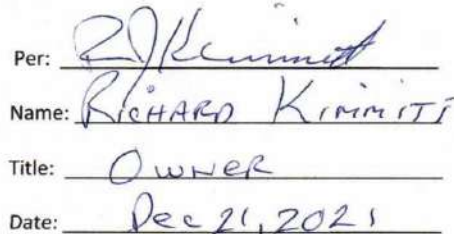 Per: RJKimmitt
Name: RICHARD KIMMITT
Title: OWNER
Date: Dec 21, 2021